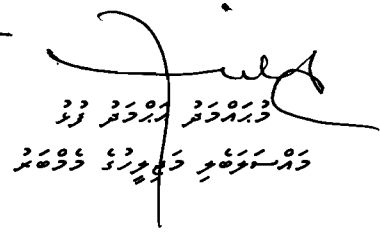 މުޙައްމަދު އަޙްމަދު ފުޅު
މައްސަލަބެލި މަޖިލީހުގެ މެމްބަރު